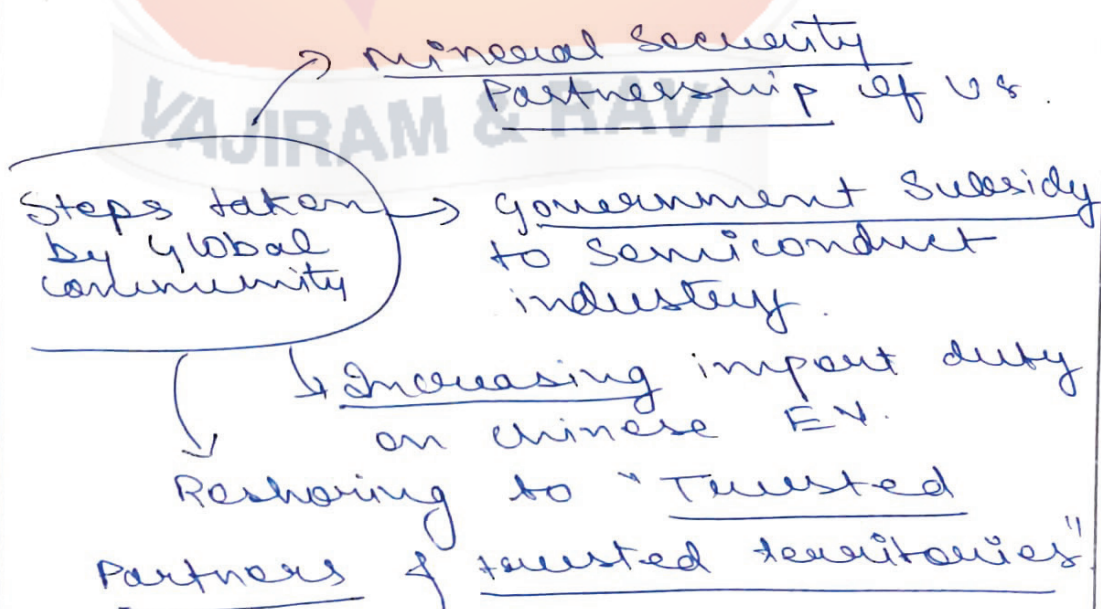 Mineral Security
Partnership of US.
VAJIRAM & RAVI
Steps taken
by Global
community
Government Subsidy
to Semiconduct
industry.
Increasing import duty
on chinese EV.
Reshoring to "Trusted
Partners & trusted territories"